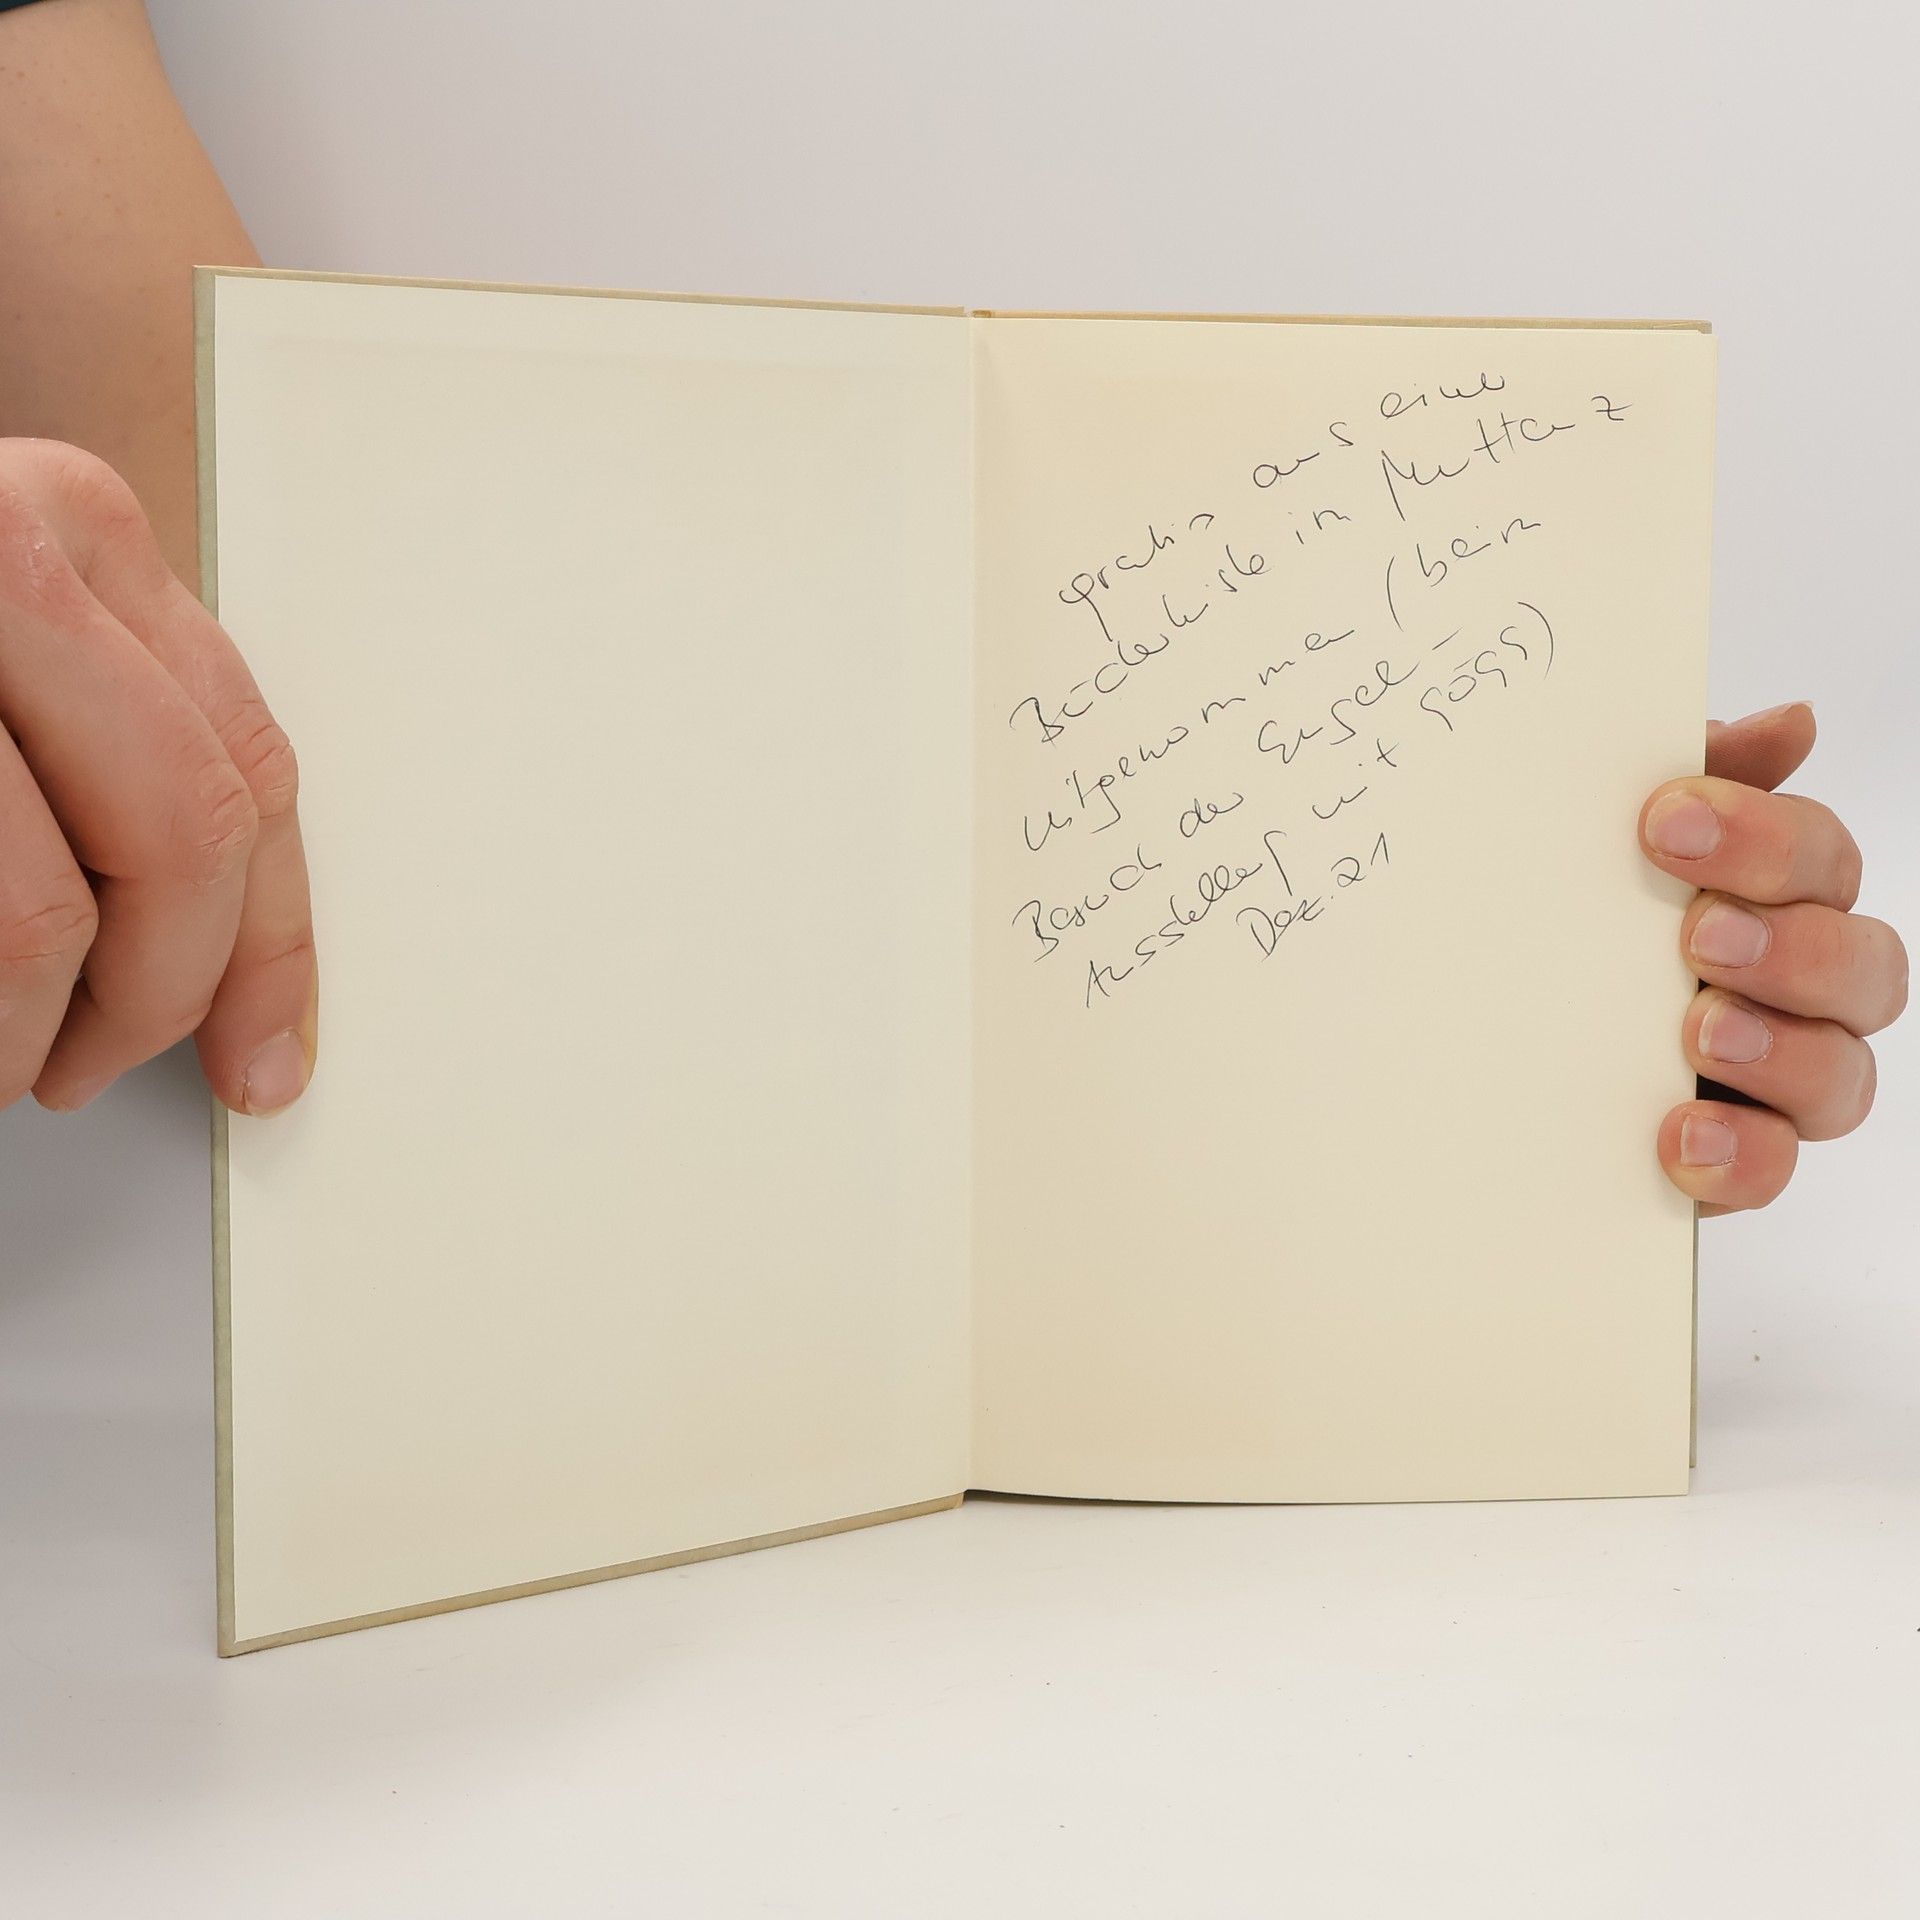 gratis aus einer
Bücherkiste in Muttenz
mitgenommen (beim
Besuch der Engel-
Ausstellung mit Gögs)
Dez. 21